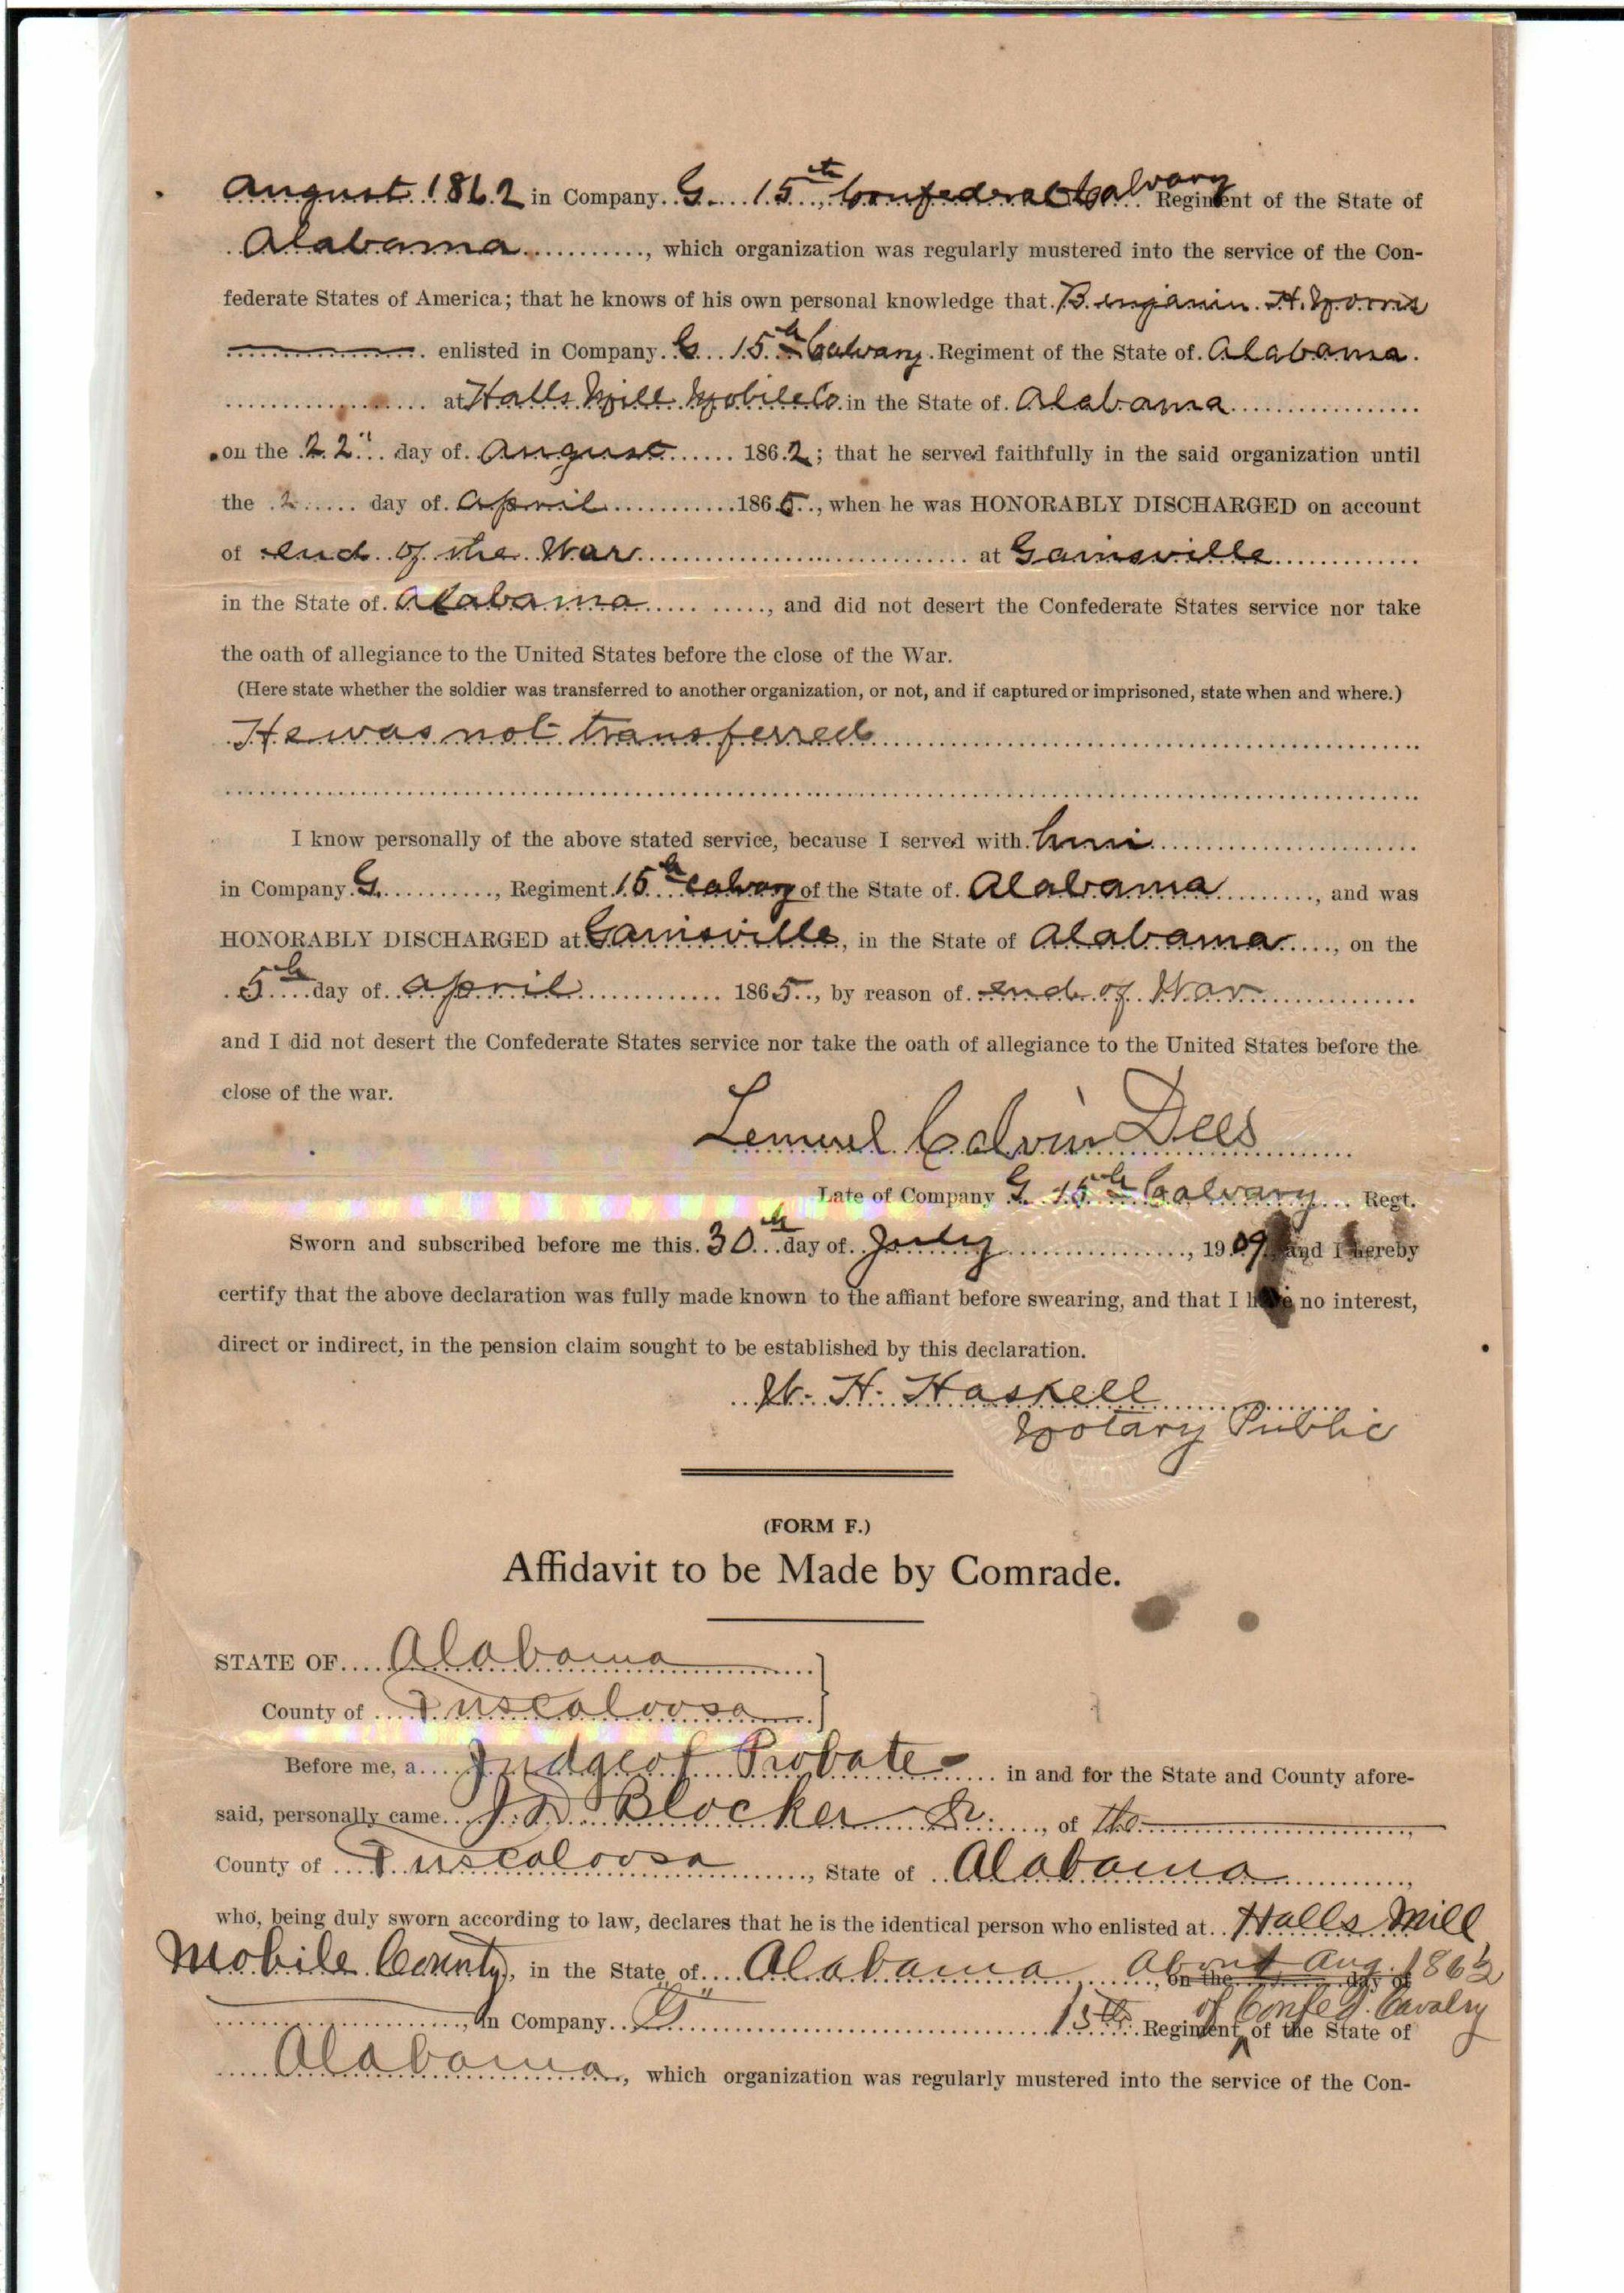 August 1862 in Company G 15th Confederate Calvary Regiment of the State of
Alabama, which organization was regularly mustered into the service of the Con-
federate States of America; that he knows of his own personal knowledge that Benjamin H. Norris
enlisted in Company G 15th Calvary Regiment of the State of Alabama
at Halls Mill Mobile Co in the State of Alabama
on the 22" day of August 1862; that he served faithfully in the said organization until
the 2 day of April 1865, when he was HONORABLY DISCHARGED on account
of end of the War at Gainsville
in the State of Alabama, and did not desert the Confederate States service nor take
the oath of allegiance to the United States before the close of the War.
(Here state whether the soldier was transferred to another organization, or not, and if captured or imprisoned, state when and where.)
He was not transferred
I know personally of the above stated service, because I served with him
in Company G, Regiment 15th Calvary of the State of Alabama, and was
HONORABLY DISCHARGED at Gainsville, in the State of Alabama, on the
5th day of April 1865, by reason of end of War
and I did not desert the Confederate States service nor take the oath of allegiance to the United States before the
close of the war.
Lemuel Calvin Dees
Late of Company G 15th Calvary Regt.
Sworn and subscribed before me this 30th day of July, 1909, and I hereby
certify that the above declaration was fully made known to the affiant before swearing, and that I have no interest,
direct or indirect, in the pension claim sought to be established by this declaration.
W. H. Haskell
Notary Public
(FORM F.)
Affidavit to be Made by Comrade.
STATE OF Alabama
County of Tuscaloosa
Before me, a Judge of Probate in and for the State and County afore-
said, personally came J. D. Blocker Sr., of the
County of Tuscaloosa, State of Alabama,
who, being duly sworn according to law, declares that he is the identical person who enlisted at Halls Mill
Mobile County, in the State of Alabama, about Aug. 1862 on the day of
, in Company "G" 15th Regiment of Confed. Cavalry of the State of
Alabama, which organization was regularly mustered into the service of the Con-